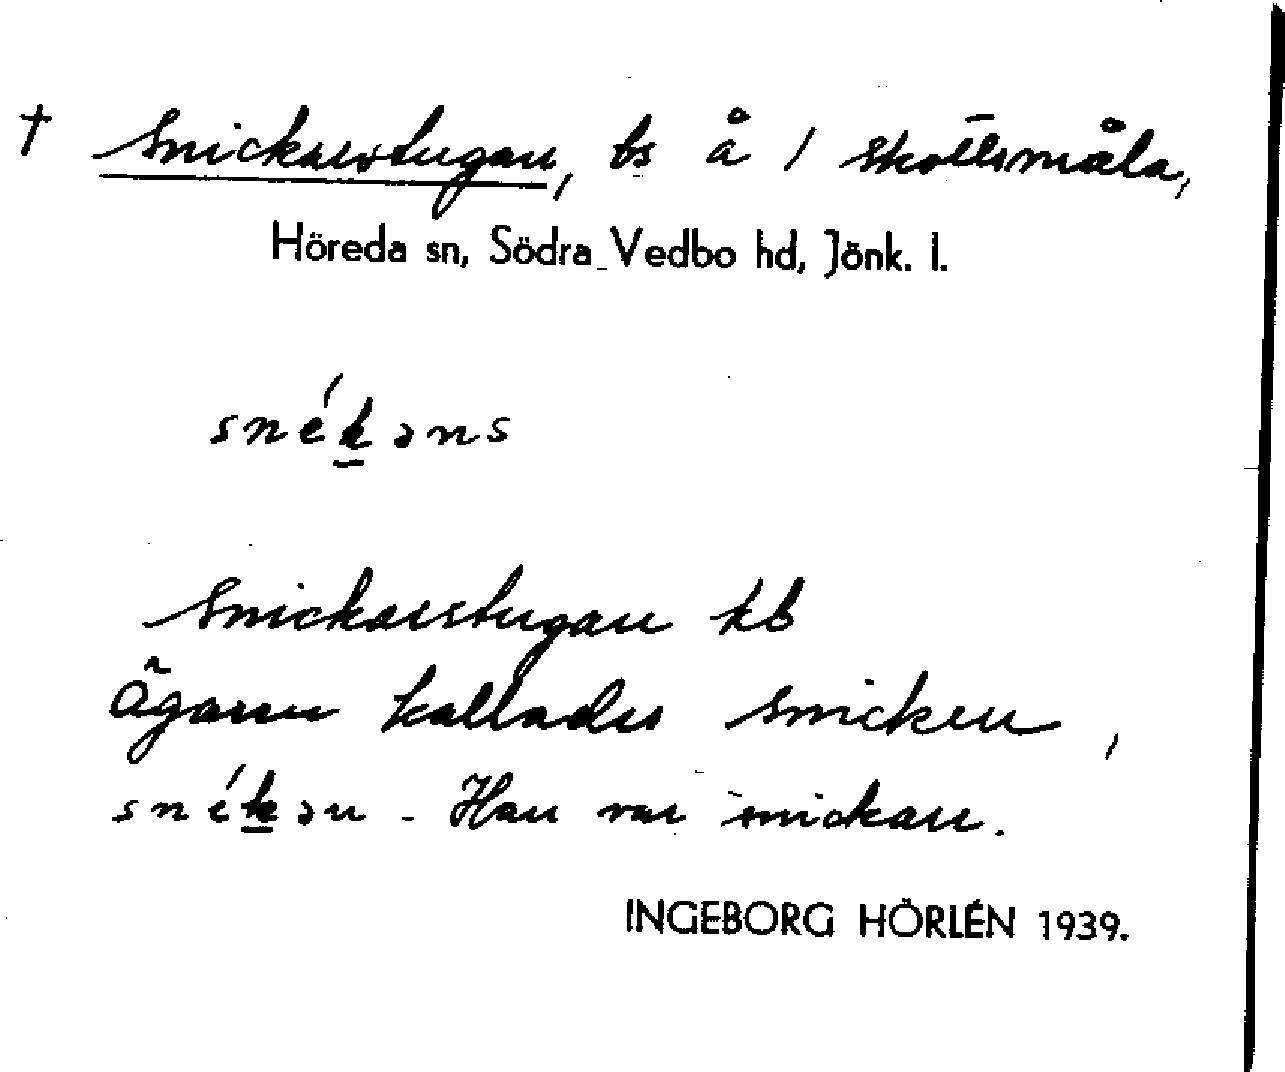 † Snickarstugan, bs å / Skottsmåla,
Höreda sn, Södra Vedbo hd, Jönk. l.
snék̲əns
Snickarstugan kb
Ägaren kallades Snicken,
snék̲ən - Han var snickare.
INGEBORG HÖRLÉN 1939.